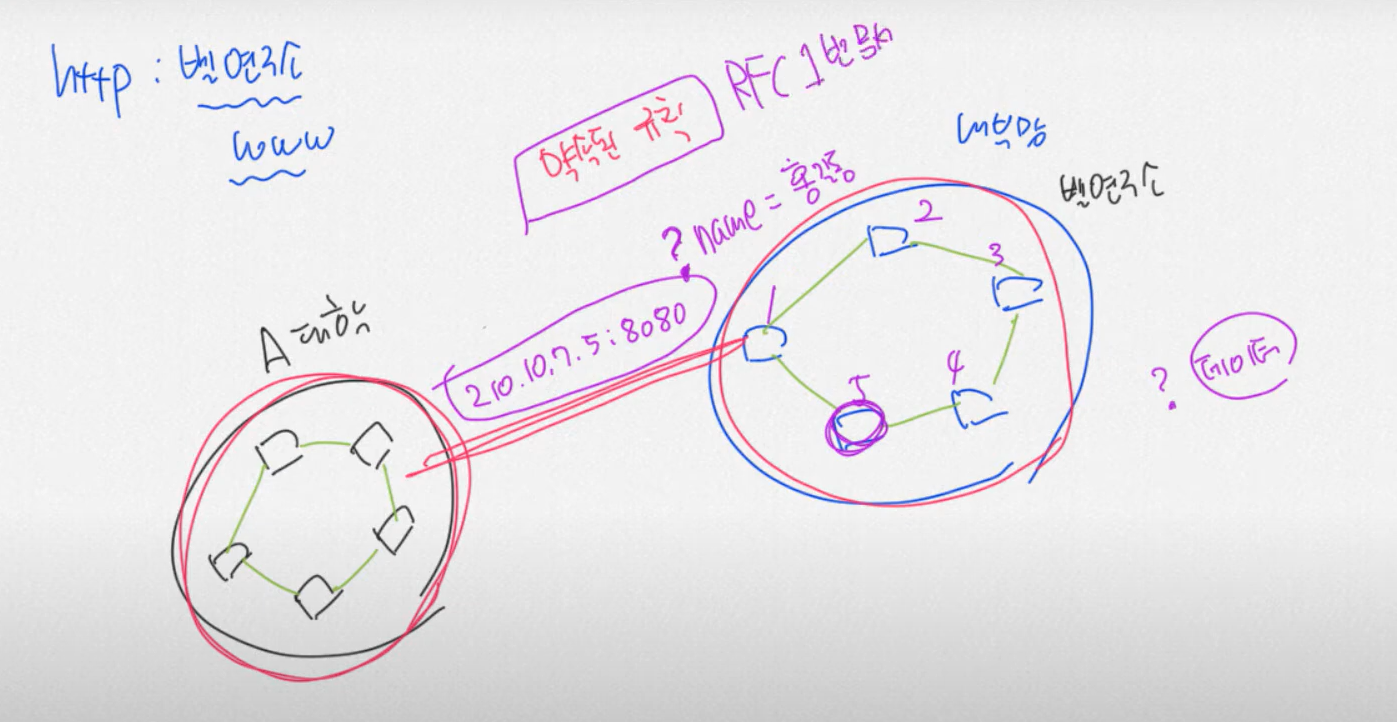 http : 벨연구소
www
약속된 규칙
RFC 1번 문서
내부망
벨연구소
? name = 홍길동
210.10.7.5:8080
A 대학
1
2
3
4
5
? 데이터